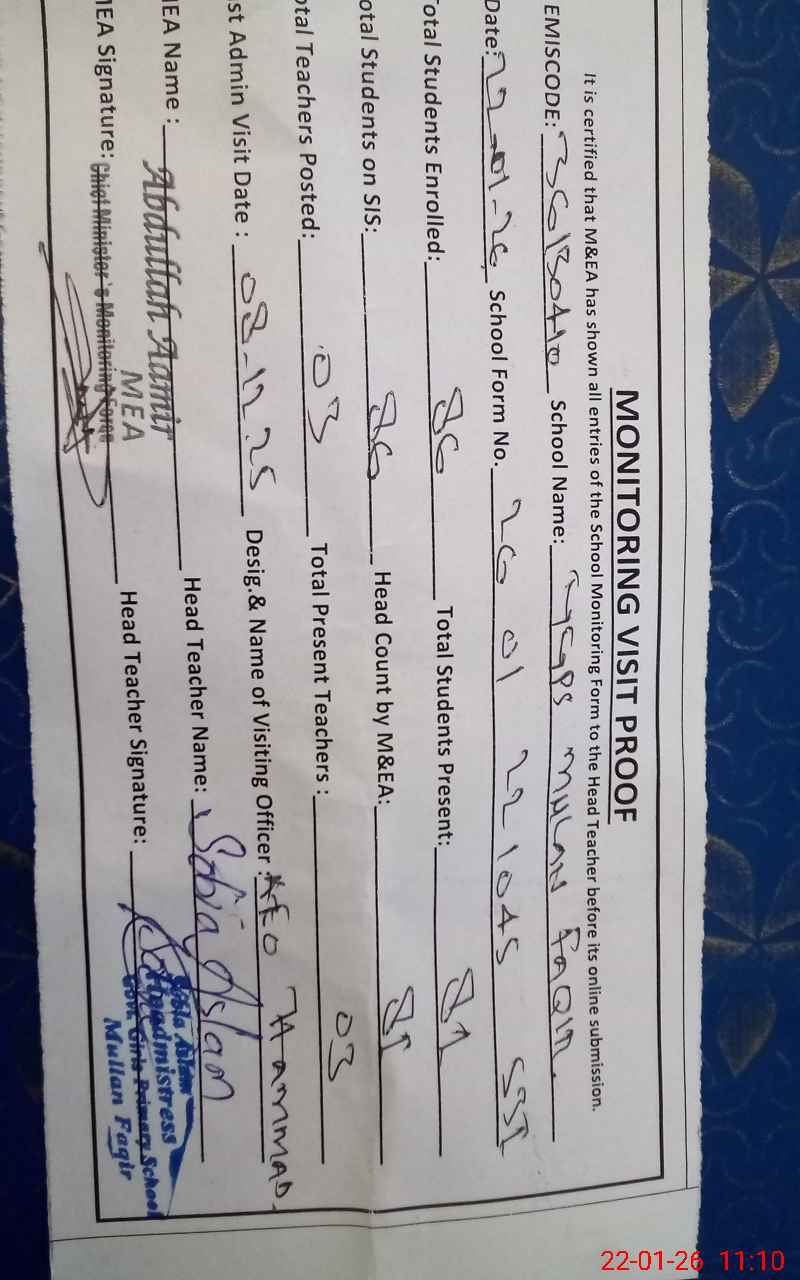 MONITORING VISIT PROOF
It is certified that M&EA has shown all entries of the School Monitoring Form to the Head Teacher before its online submission.
EMISCODE: 36130410 School Name: GGPS MULAN FAQIR.
Date: 22-01-26 School Form No. 26 01 22 1045 531
Total Students Enrolled: 86 Total Students Present: 81
otal Students on SIS: 86 Head Count by M&EA: 81
otal Teachers Posted: 03 Total Present Teachers : 03
st Admin Visit Date : 08-12-25 Desig.& Name of Visiting Officer : AEO HAMMAD
IEA Name : Abdullah Aamir Head Teacher Name: Sobia Aslam
MEA
IEA Signature: Chief Minister's Monitoring Force Head Teacher Signature:
Sobia Aslam
Headmistress
Govt. Girls Primary School
Mullan Faqir
22-01-26 11:10